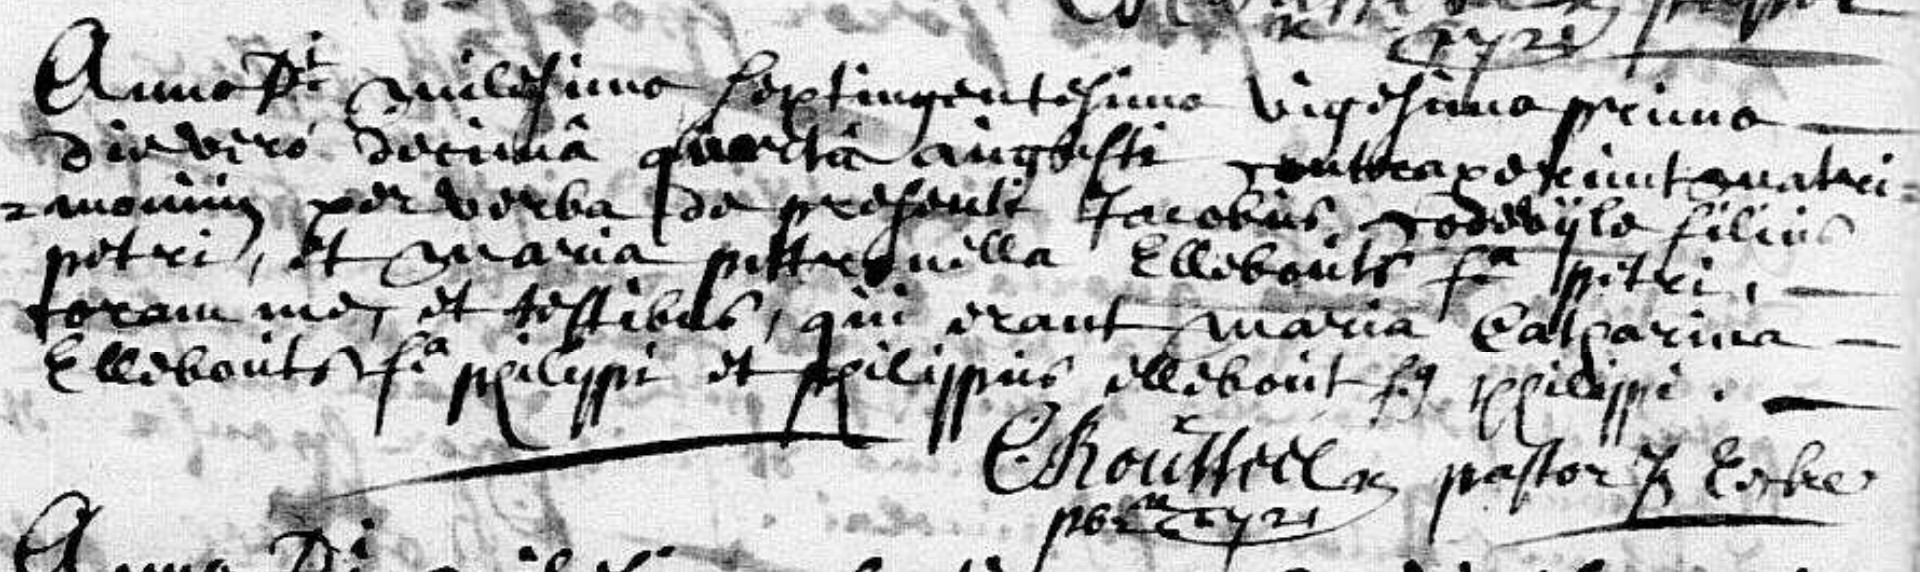 1721
Anno Di milesimo septingentesimo vigesimo primo
die vero decimâ quarctâ augusti contraxerunt matri-
monium per verba de presenti Jacobus godevijle filius
petri, et maria pettronilla Ellebouts fa petri,
coram me, et testibus, qui erant maria Catharina
Ellebouts fa philippi et philippus ellebout fs philippi.
C Roussel pastor
1721
Anno Di